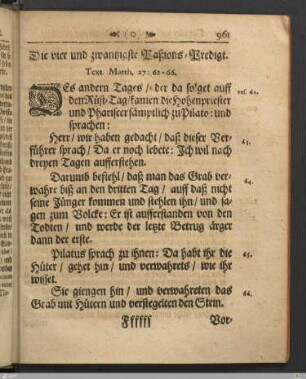 ( o ) 961
Die vier und zwantzigste Paßions-Predigt.
Text. Matth. 27: 62-66.
DEs andern Tages / der da folget auff vsf. 62.
den Rüst-Tag / kamen die Hohenpriester
und Phariseer sämptlich zu Pilato: und
sprachen:
Herr / wir haben gedacht / daß dieser Ver- 63.
führer sprach / Da er noch lebete: Ich wil nach
dreyen Tagen aufferstehen.
Darumb befiehl / daß man das Grab ver- 64.
wahre biß an den dritten Tag / auff daß nicht
seine Jünger kommen und stehlen ihn / und sa-
gen zum Volcke: Er ist aufferstanden von den
Todten / und werde der letzte Betrug ärger
dann der erste.
Pilatus sprach zu ihnen: Da habt ihr die 65.
Hüter / gehet hin / und verwahrets / wie ihr
wisset.
Sie giengen hin / und verwahreten das 66.
Grab mit Hütern und versiegelten den Stein.
Ffffff Vor-